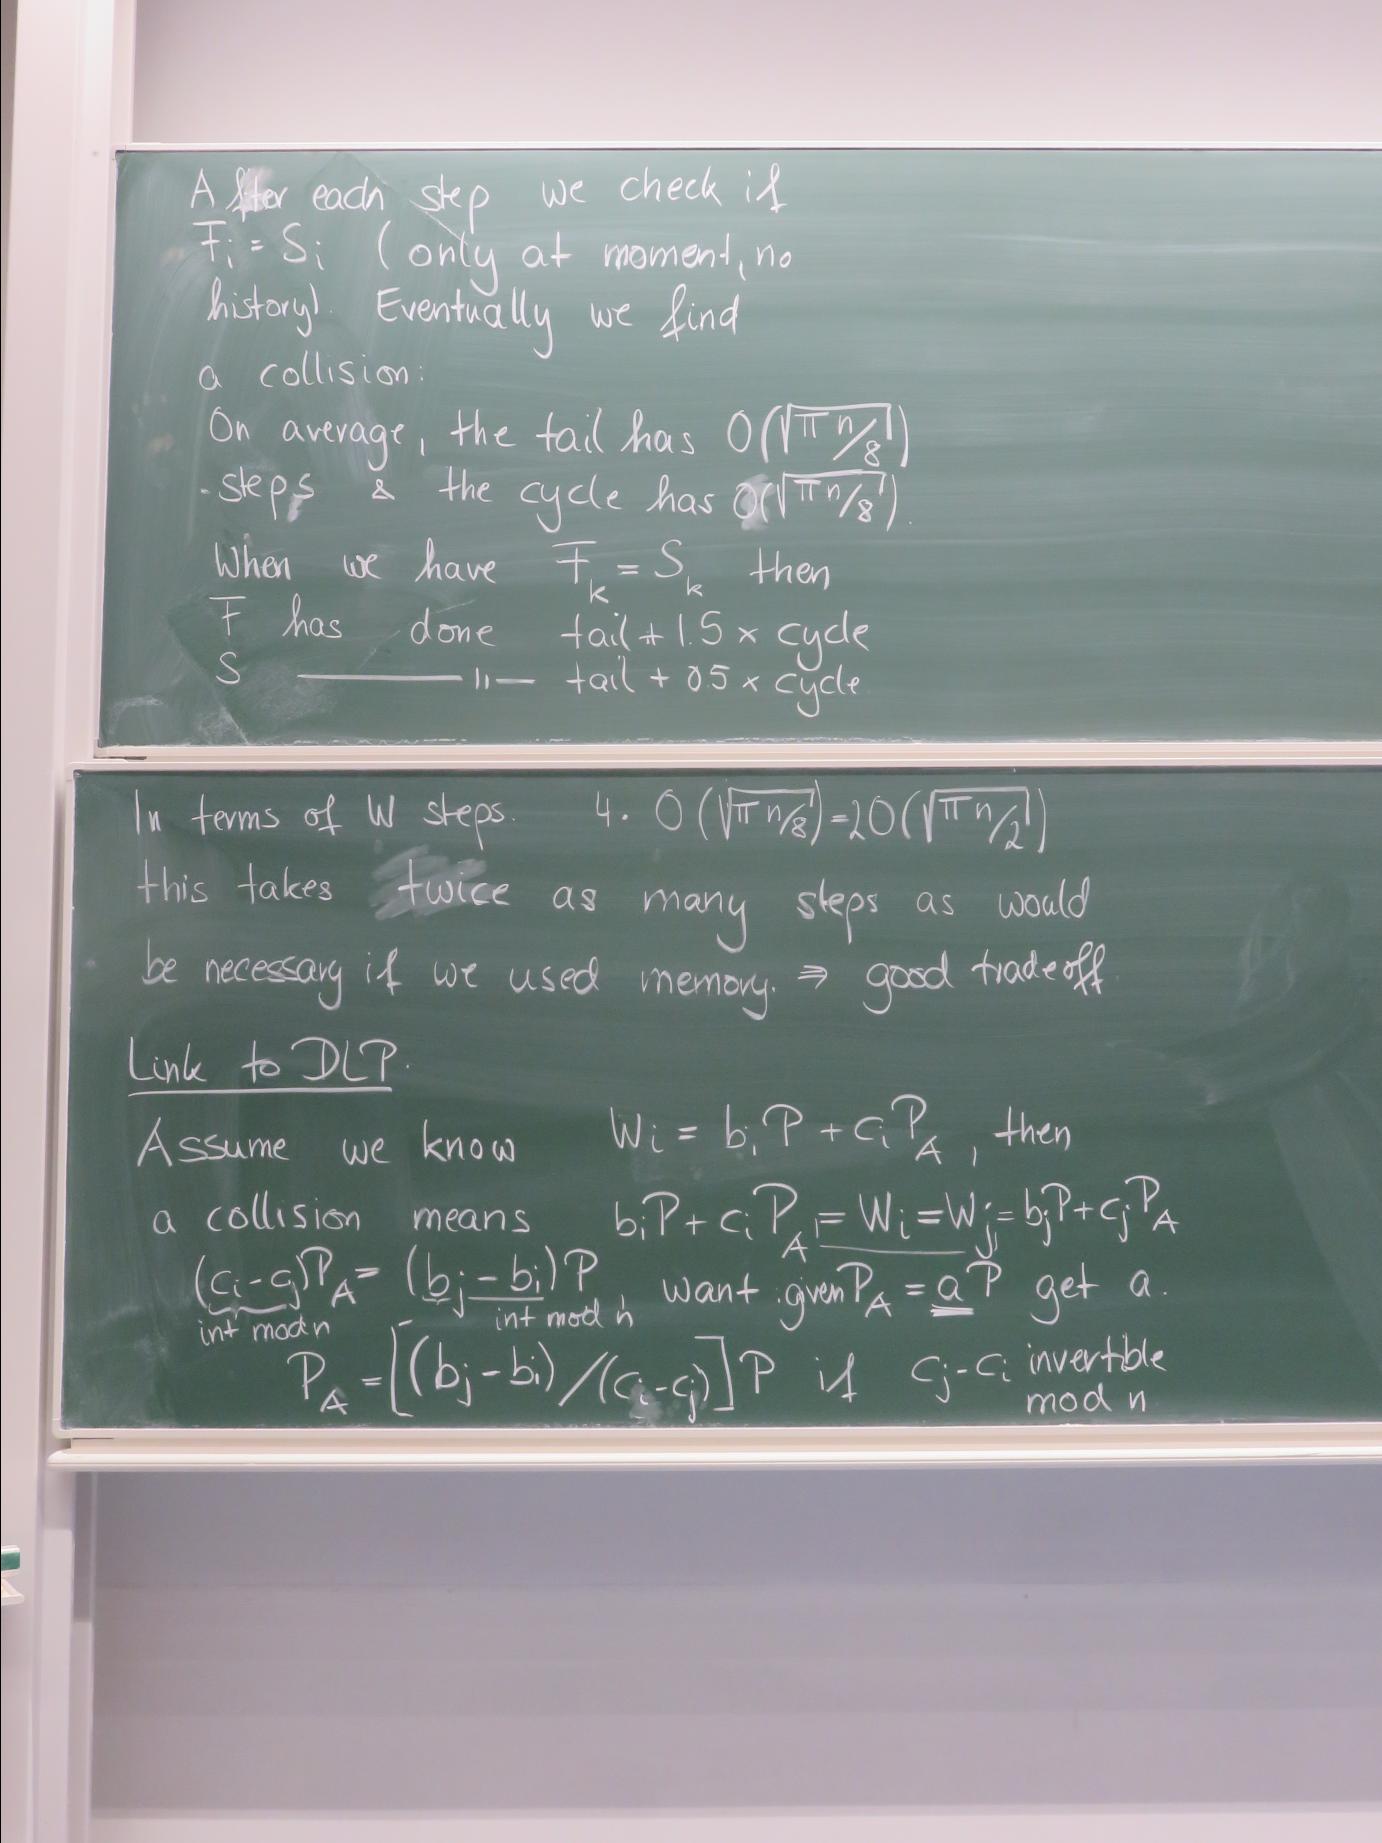 After each step we check if
Fi = Si (only at moment, no
history). Eventually we find
a collision:
On average, the tail has O(√πn/8)
steps & the cycle has O(√πn/8).
When we have Fk = Sk then
F has done tail + 1.5 × cycle
S ———"— tail + 0.5 × cycle
In terms of W steps. 4. O(√πn/8) = 2O(√πn/2)
this takes twice as many steps as would
be necessary if we used memory. ⇒ good tradeoff
Link to DLP.
Assume we know Wi = biP + ciPA, then
a collision means biP + ciPA = Wi = Wj = bjP + cjPA
(ci - cj)PA = (bj - bi)P, want: given PA = aP get a.
int mod n int mod n
PA = [(bj - bi)/(ci - cj)]P if cj - ci invertible
mod n